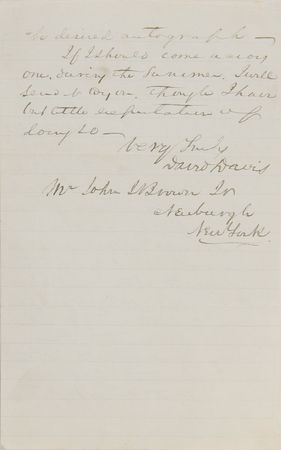 the desired autograph —
If I should come across
one, during the Summer, I will
send it to you, though I have
but little expectation of
doing so —
Very Truly
David Davis
Mr John Brown Jr
Newburgh
New York